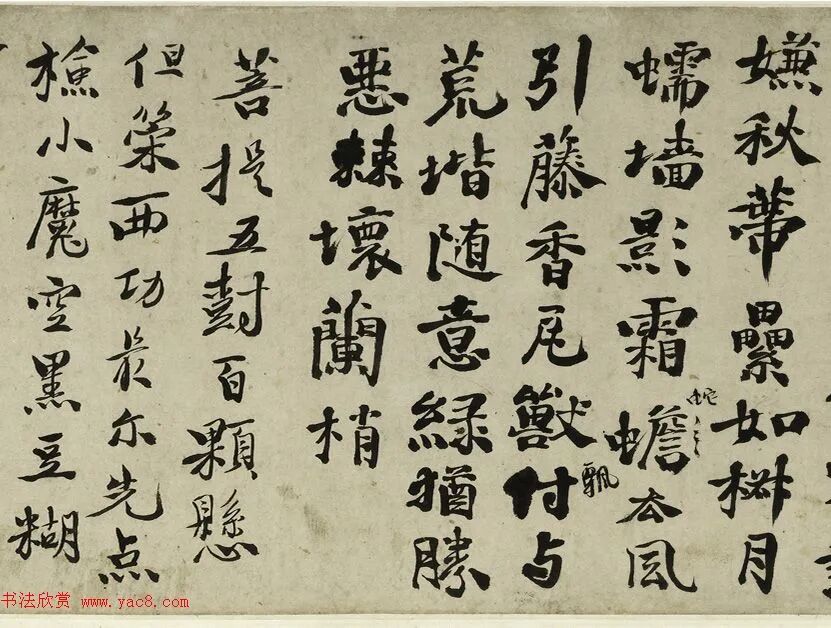 嫌秋蒂纍如樹月
蠕墙影霜蟾去風
蛇
引藤香瓦獸付与
飘
荒堦随意緑猶勝
惡棘壞蘭梢
菩提五對百顆懸
但策西功最尔先点
檢小魔空黑豆糊
书法欣赏 www.yac8.com